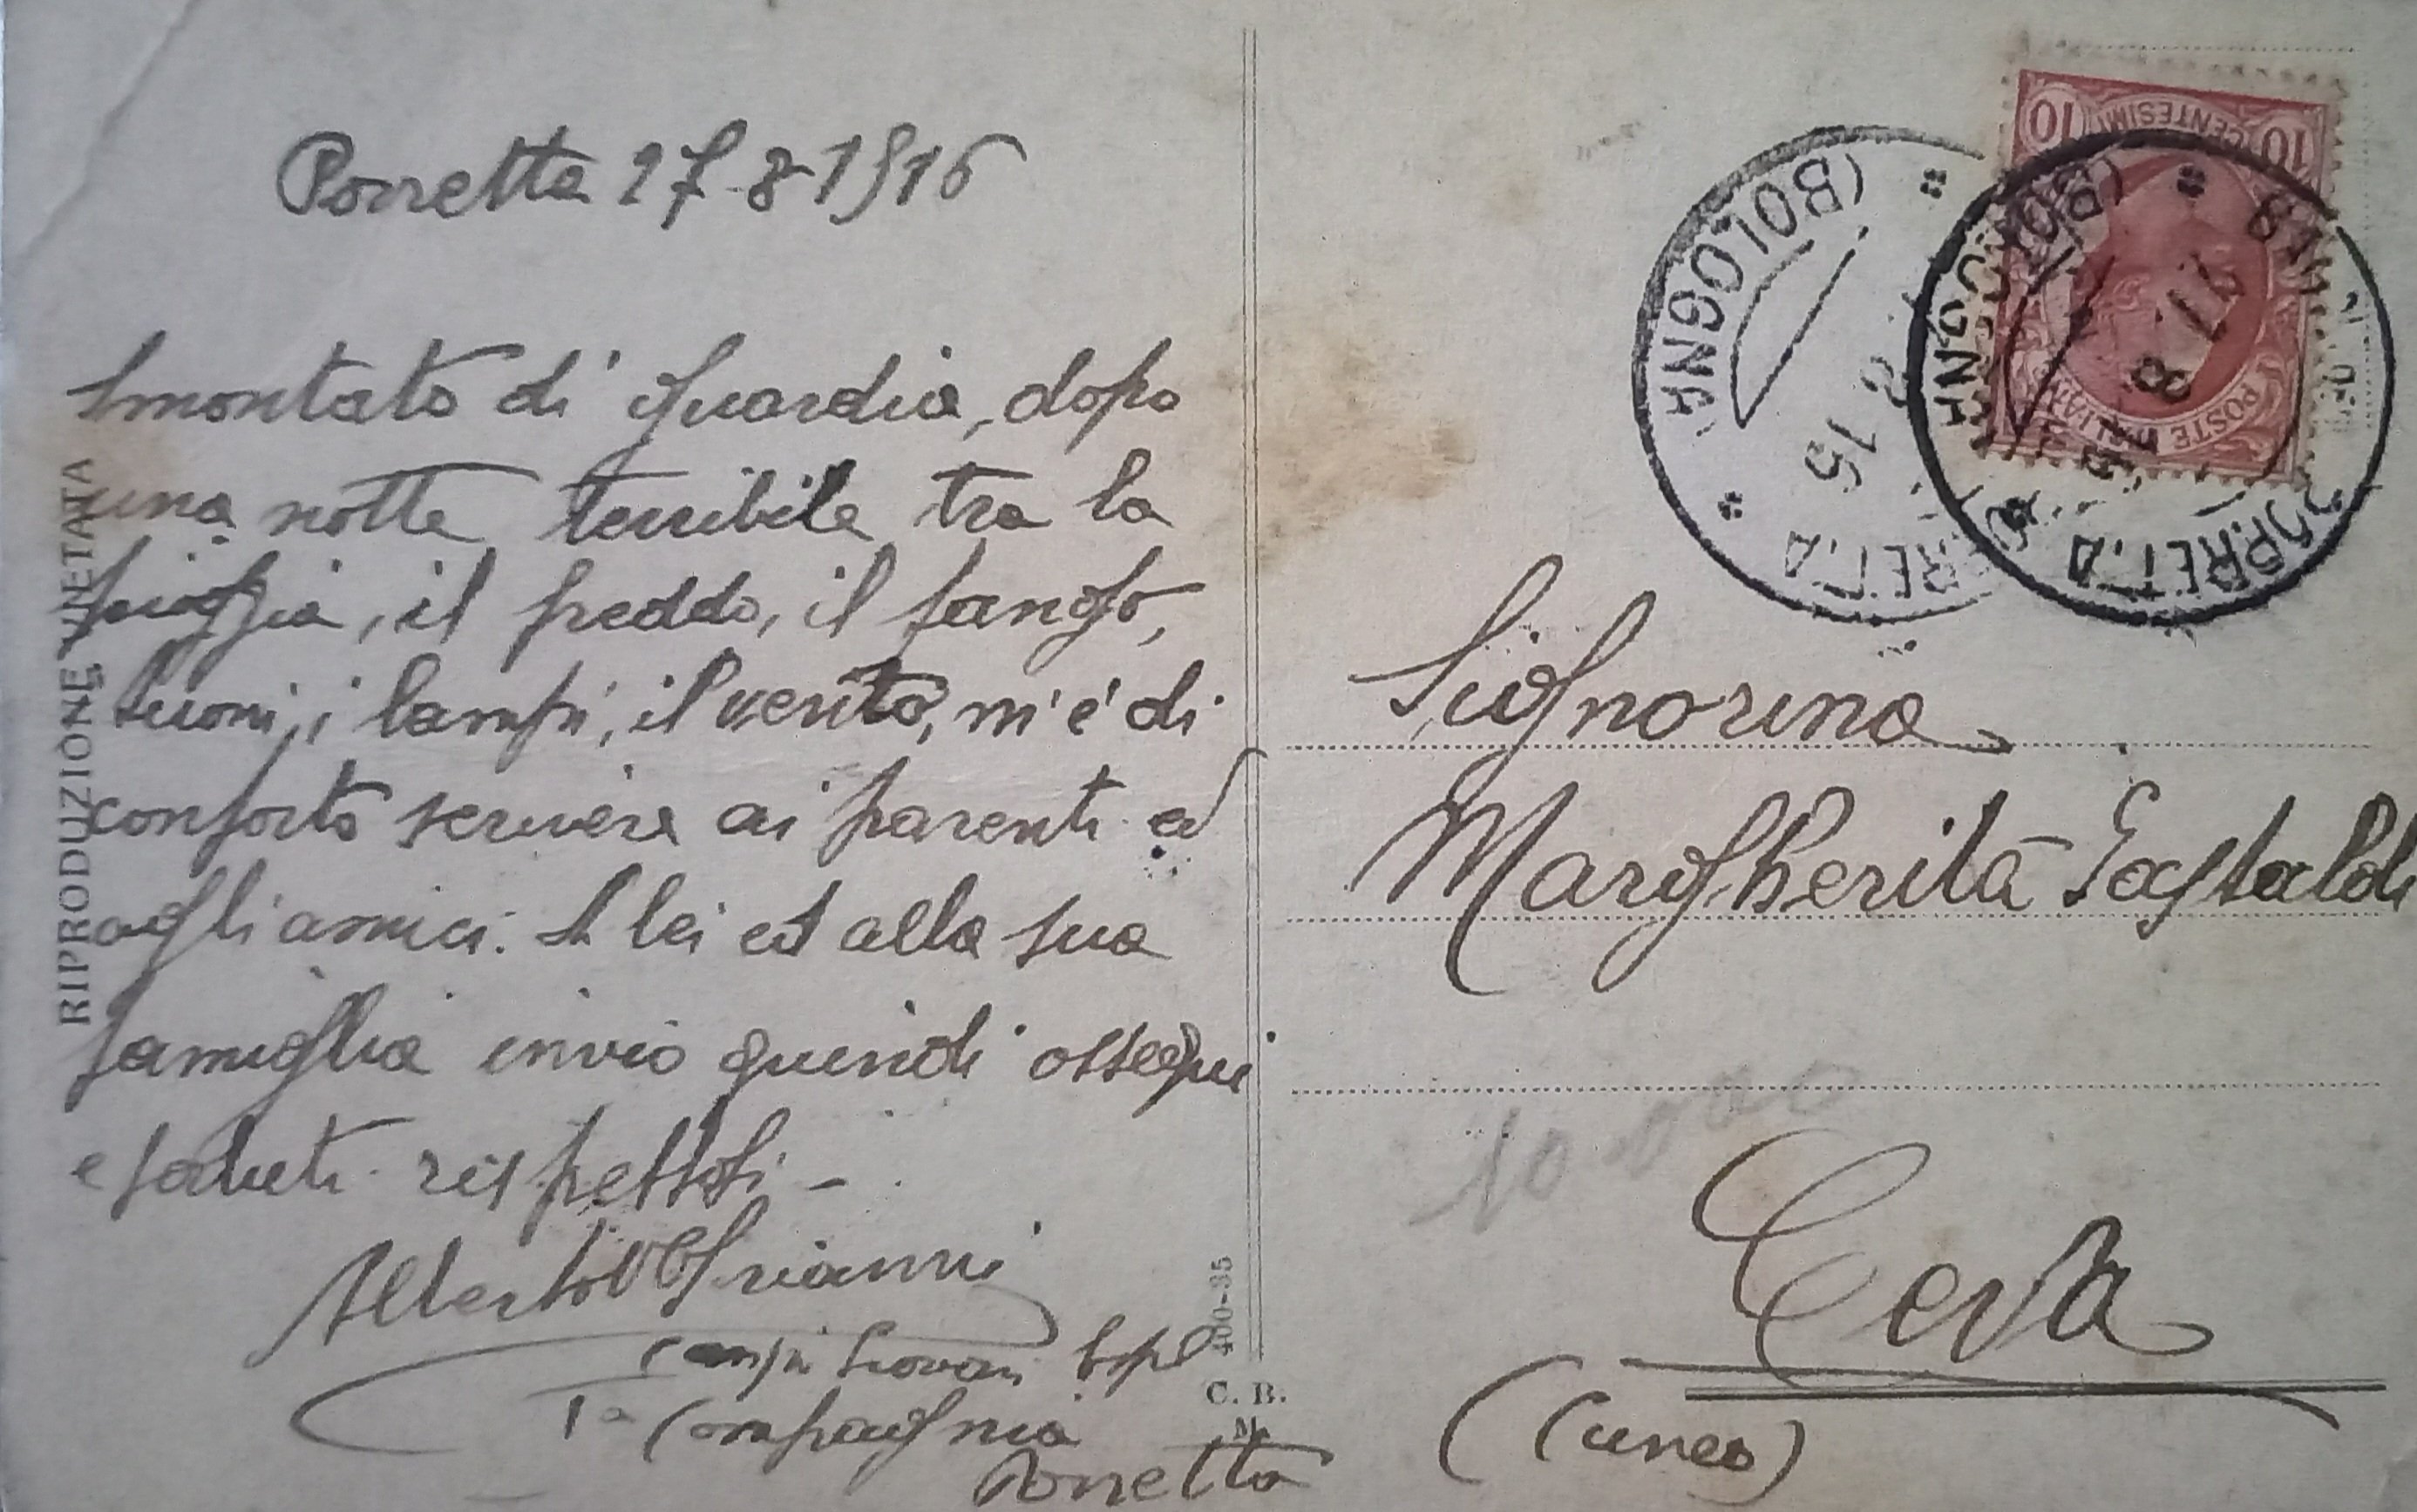 Porretta 27-8-1916
Smontato di guardia, dopo
una notte terribile tra la
pioggia, il freddo, il fango,
tuoni, i lampi, il vento, m'è di
conforto scrivere ai parenti ed
agli amici. A lei ed alla sua
famiglia invio quindi ossequi
e saluti rispettosi -
Alberto
Giovani
1a Compagnia
Porretta
RIPRODUZIONE VIETATA
400-35
C. B.
M.
10 CENTESIMI 10
POSTE ITALIANE
(BOLOGNA)
8 15
(BOLOGNA)
27.8
PORRETTA
Signorina
Margherita Gastaldi
10 000
Ceva
(Cuneo)